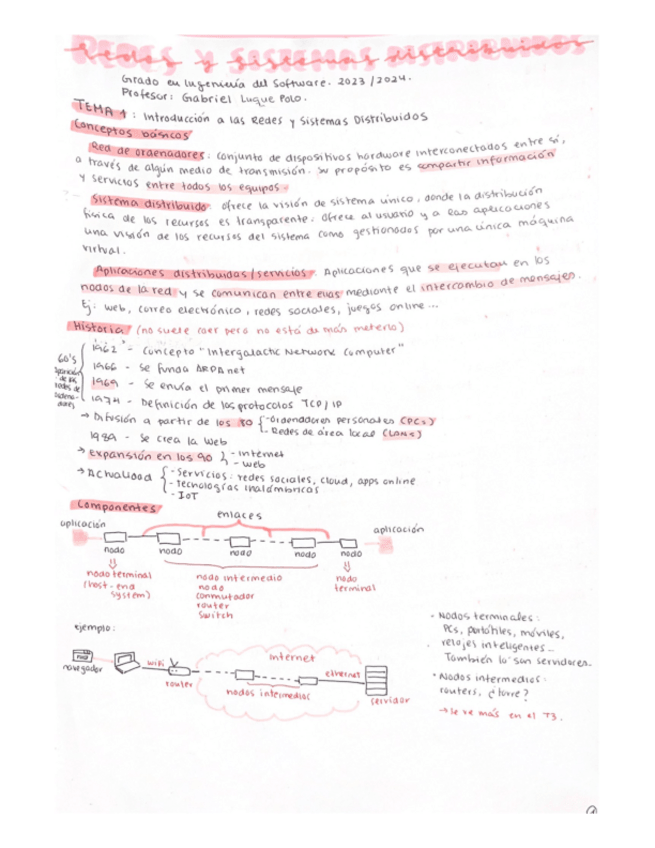 Redes y sistemas distribuidos
Grado en Ingeniería del Software. 2023/2024.
Profesor: Gabriel Luque Polo.
TEMA 1: Introducción a las Redes y Sistemas Distribuidos
Conceptos básicos
Red de ordenadores: conjunto de dispositivos hardware interconectados entre sí,
a través de algún medio de transmisión. Su propósito es compartir información
y servicios entre todos los equipos.
Sistema distribuido: ofrece la visión de sistema único, donde la distribución
física de los recursos es transparente. Ofrece al usuario y a las aplicaciones
una visión de los recursos del sistema como gestionados por una única máquina
virtual.
Aplicaciones distribuidas/servicios: Aplicaciones que se ejecutan en los
nodos de la red y se comunican entre ellas mediante el intercambio de mensajes.
Ej: web, correo electrónico, redes sociales, juegos online...
Historia (no suele caer pero no está de más meterlo)
60's
aparición de las redes de ordenadores
1962 - Concepto "Intergalactic Network Computer"
1966 - Se funda ARPAnet
1969 - Se envía el primer mensaje
1974 - Definición de los protocolos TCP/IP
→ Difusión a partir de los 80 { - Ordenadores personales (PCs)
- Redes de área local (LANs)
1989 - Se crea la Web
→ Expansión en los 90 } - Internet
- Web
→ Actualidad { - Servicios: redes sociales, cloud, apps online
- Tecnologías inalámbricas
- IoT
Componentes
enlaces
aplicación
aplicación
nodo nodo nodo nodo nodo
nodo terminal
(host-end
system)
nodo intermedio
nodo
conmutador
router
switch
nodo
terminal
ejemplo:
navegador
wifi
router
internet
nodos intermedios
ethernet
servidor
- Nodos terminales:
PCs, portátiles, móviles,
relojes inteligentes...
También lo son servidores.
• Nodos intermedios:
routers, ¿torre?
→ se ve más en el T3.